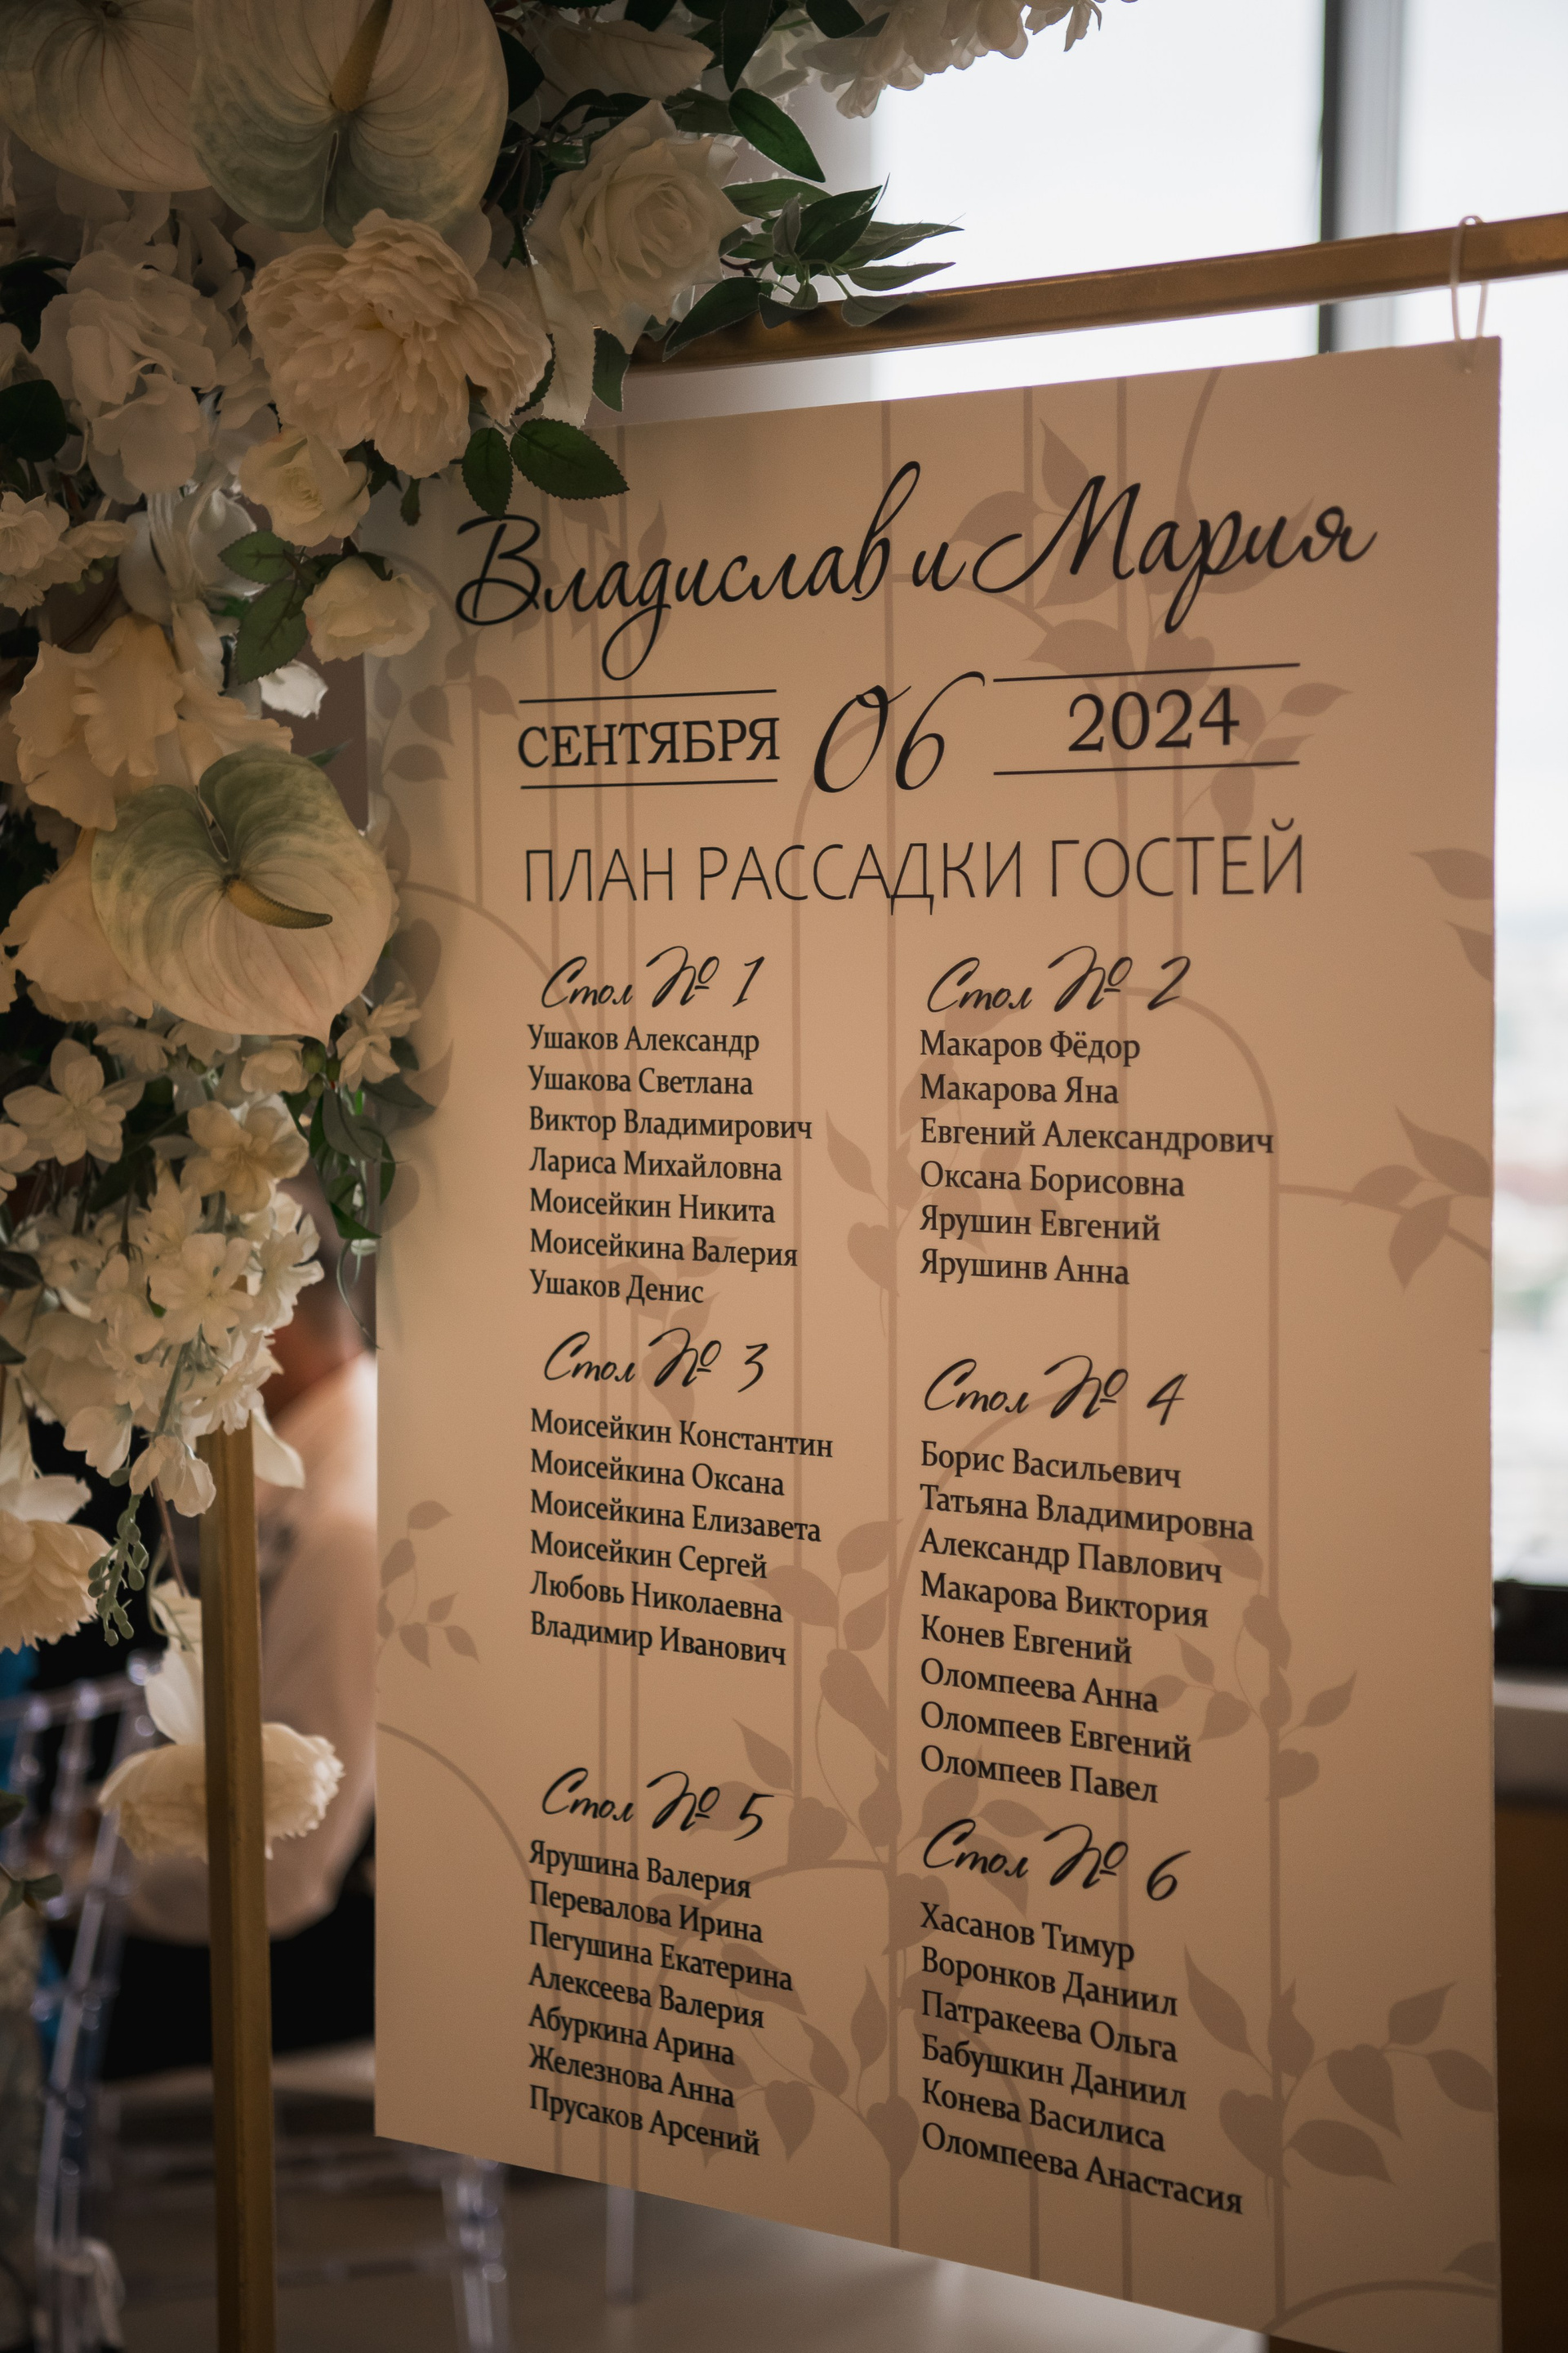 Владислав и Мария
СЕНТЯБРЯ 06 2024
ПЛАН РАССАДКИ ГОСТЕЙ
Стол № 1
Ушаков Александр
Ушакова Светлана
Виктор Владимирович
Лариса Михайловна
Моисейкин Никита
Моисейкина Валерия
Ушаков Денис
Стол № 2
Макаров Фёдор
Макарова Яна
Евгений Александрович
Оксана Борисовна
Ярушин Евгений
Ярушинв Анна
Стол № 3
Моисейкин Константин
Моисейкина Оксана
Моисейкина Елизавета
Моисейкин Сергей
Любовь Николаевна
Владимир Иванович
Стол № 4
Борис Васильевич
Татьяна Владимировна
Александр Павлович
Макарова Виктория
Конев Евгений
Оломпеева Анна
Оломпеев Евгений
Оломпеев Павел
Стол № 5
Ярушина Валерия
Перевалова Ирина
Пегушина Екатерина
Алексеева Валерия
Абуркина Арина
Железнова Анна
Прусаков Арсений
Стол № 6
Хасанов Тимур
Воронков Даниил
Патракеева Ольга
Бабушкин Даниил
Конева Василиса
Оломпеева Анастасия